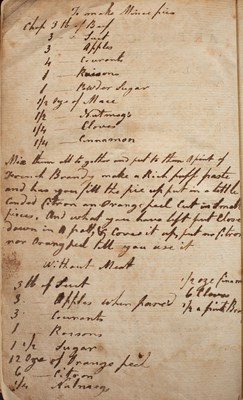 To make Mince pies
Chop 3 lb of Beef
3 - Suet
3 - Apples
4 - Courants
1 - Raisons
1 - Powdar Sugar
1/2 oze of Mace
1/2 - Nutmegs
1/4 - Cloves
1/4 - Cinnamon
Mix them all together and put to them a pint of
French Brandy make a Rich puff paste
and has you fill the pie up put in a little
Candid Citron an Orange peel Cut in Small
pieces. And what you have left put Close
down in A pott, & Cover it up, put no Citron
nor Orange peel till you use it
Without Meat
3 lb of Suet 1/2 oze Cinamon
3 - Apples when pared 6 Cloves
3 - Courants 1/2 a pint
1 - Raisons
1 1/2 - Sugar
12 oze of Orange peel
6 - Citron
1/4 - Nutmegs